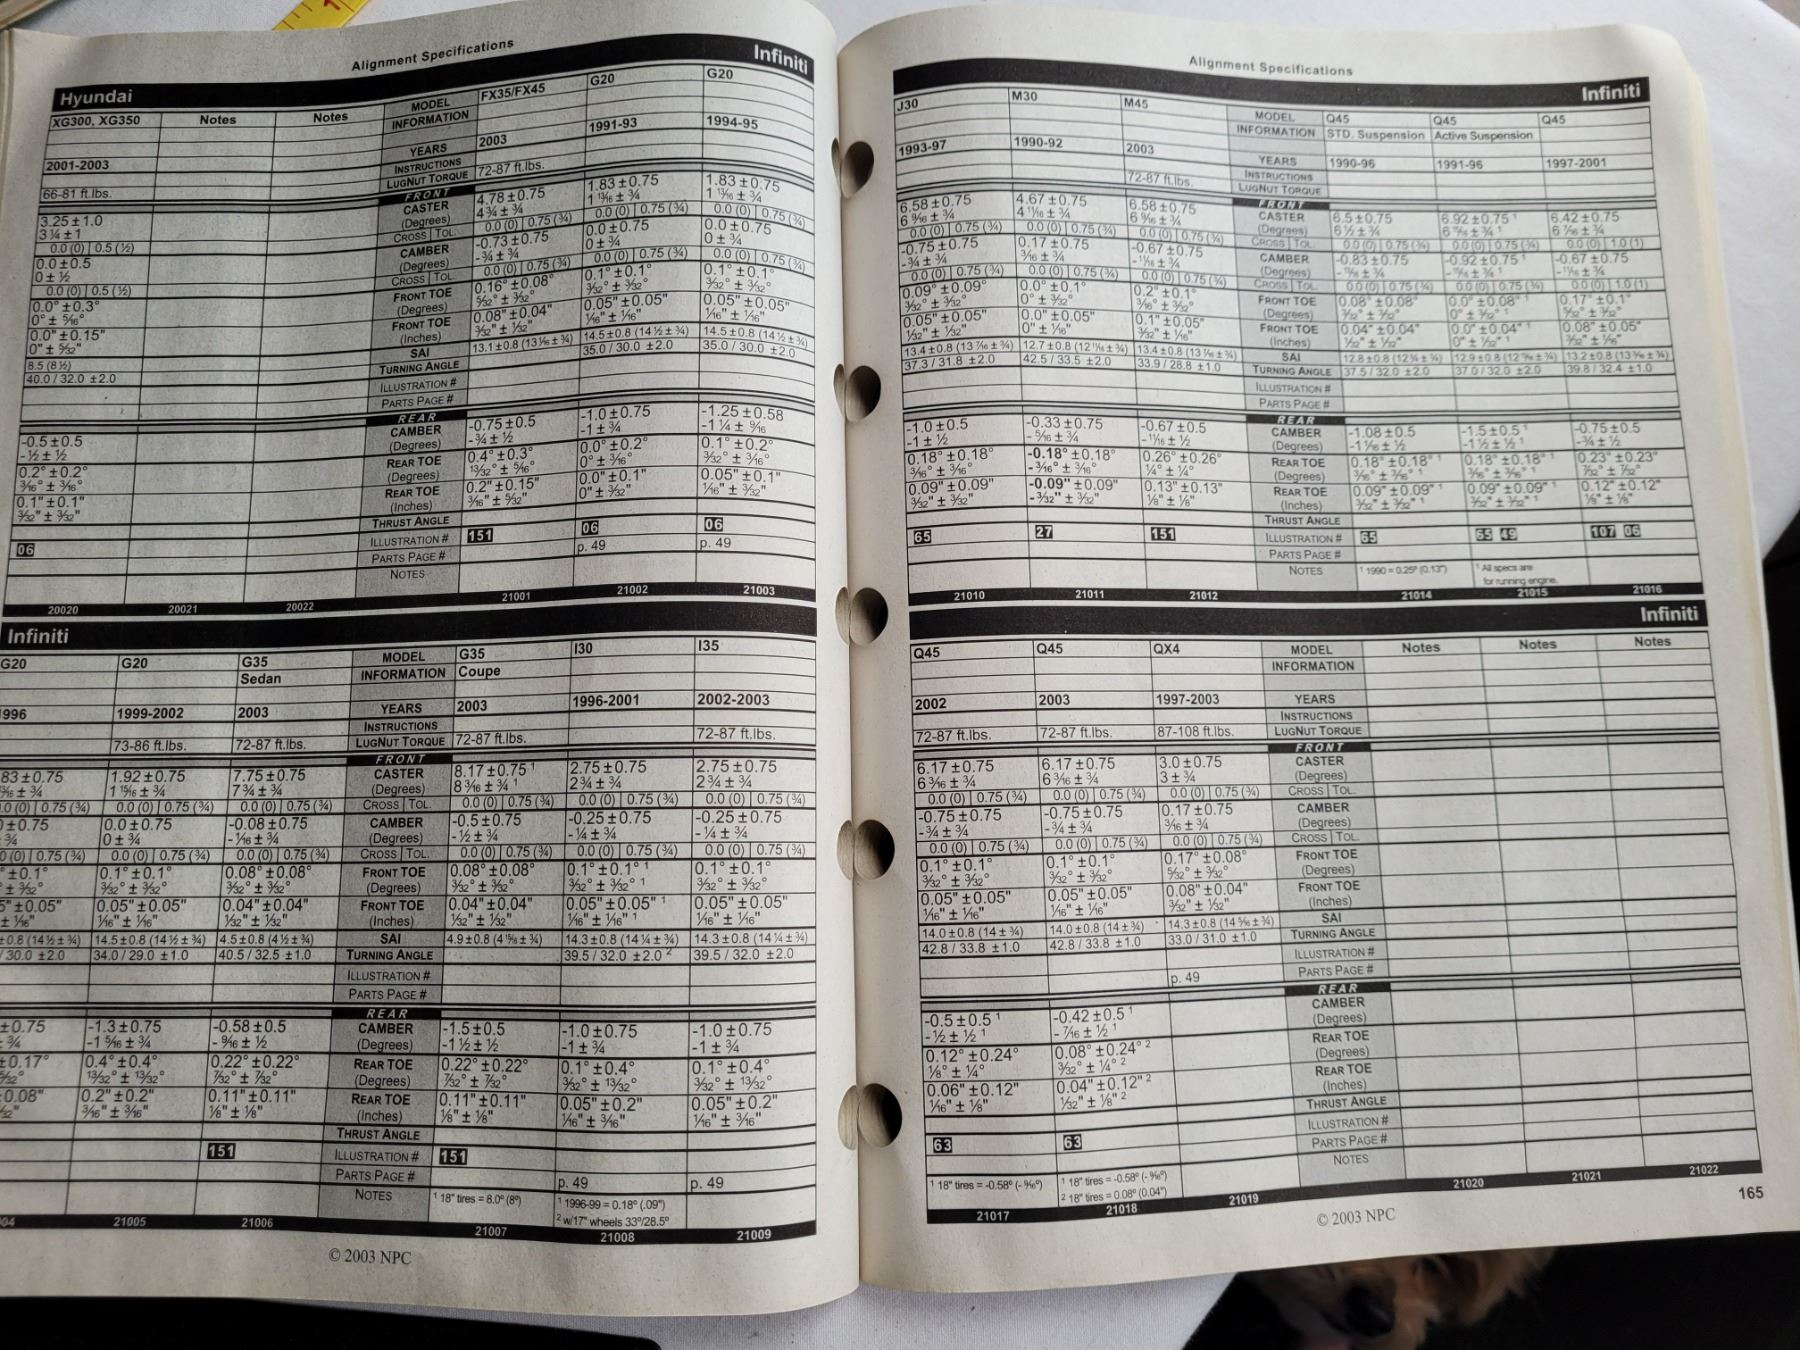 Alignment Specifications
Hyundai Infiniti
XG300, XG350 Notes Notes MODEL FX35/FX45 G20 G20
INFORMATION
2001-2003 YEARS 2003 1991-93 1994-95
INSTRUCTIONS
66-81 ft.lbs. LUGNUT TORQUE 72-87 ft.lbs.
FRONT
3.25±1.0 CASTER 4.78±0.75 1.83±0.75 1.83±0.75
3¼±1 (Degrees) 4¾±¾ 1 13/16±¾ 1 13/16±¾
0.0 (0) | 0.5 (½) CROSS | TOL. 0.0 (0) | 0.75 (¾) 0.0 (0) | 0.75 (¾) 0.0 (0) | 0.75 (¾)
0.0±0.5 CAMBER -0.73±0.75 0.0±0.75 0.0±0.75
0±½ (Degrees) -¾±¾ 0±¾ 0±¾
0.0 (0) | 0.5 (½) CROSS | TOL 0.0 (0) | 0.75 (¾) 0.0 (0) | 0.75 (¾) 0.0 (0) | 0.75 (¾)
0.0°±0.3° FRONT TOE 0.16°±0.08° 0.1°±0.1° 0.1°±0.1°
0°±5/16° (Degrees) 5/32°±3/32° 3/32°±3/32° 3/32°±3/32°
0.0"±0.15" FRONT TOE 0.08"±0.04" 0.05"±0.05" 0.05"±0.05"
0"±5/32" (Inches) 3/32"±1/32" 1/16"±1/16" 1/16"±1/16"
8.5 (8½) SAI 13.1±0.8 (13 1/16±¾) 14.5±0.8 (14½±¾) 14.5±0.8 (14½±¾)
40.0 / 32.0 ±2.0 TURNING ANGLE 35.0 / 30.0 ±2.0 35.0 / 30.0 ±2.0
ILLUSTRATION #
PARTS PAGE #
REAR
-0.5±0.5 CAMBER -0.75±0.5 -1.0±0.75 -1.25±0.58
-½±½ (Degrees) -¾±½ -1±¾ -1¼±9/16
0.2°±0.2° REAR TOE 0.4°±0.3° 0.0°±0.2° 0.1°±0.2°
3/16°±3/16° (Degrees) 13/32°±5/16° 0°±3/16° 3/32°±3/16°
0.1"±0.1" REAR TOE 0.2"±0.15" 0.0"±0.1" 0.05"±0.1"
3/32"±3/32" (Inches) 3/16"±5/32" 0"±3/32" 1/16"±3/32"
THRUST ANGLE
06 ILLUSTRATION # 151 06 06
PARTS PAGE # p. 49 p. 49
NOTES
20020 20021 20022 21001 21002 21003
Infiniti
G20 G20 G35 MODEL G35 I30 I35
Sedan INFORMATION Coupe
1996 1999-2002 2003 YEARS 2003 1996-2001 2002-2003
INSTRUCTIONS
73-86 ft.lbs. 72-87 ft.lbs. LUGNUT TORQUE 72-87 ft.lbs. 72-87 ft.lbs.
FRONT
83±0.75 1.92±0.75 7.75±0.75 CASTER 8.17±0.75 ¹ 2.75±0.75 2.75±0.75
±¾ 1 15/16±¾ 7¾±¾ (Degrees) 8 3/16±¾ ¹ 2¾±¾ 2¾±¾
0.0 (0) | 0.75 (¾) 0.0 (0) | 0.75 (¾) 0.0 (0) | 0.75 (¾) CROSS | TOL. 0.0 (0) | 0.75 (¾) 0.0 (0) | 0.75 (¾) 0.0 (0) | 0.75 (¾)
±0.75 0.0±0.75 -0.08±0.75 CAMBER -0.5±0.75 -0.25±0.75 -0.25±0.75
¾ 0±¾ -1/16±¾ (Degrees) -½±¾ -¼±¾ -¼±¾
(0) | 0.75 (¾) 0.0 (0) | 0.75 (¾) 0.0 (0) | 0.75 (¾) CROSS | TOL. 0.0 (0) | 0.75 (¾) 0.0 (0) | 0.75 (¾) 0.0 (0) | 0.75 (¾)
±0.1° 0.1°±0.1° 0.08°±0.08° FRONT TOE 0.08°±0.08° 0.1°±0.1° ¹ 0.1°±0.1°
±3/32° 3/32°±3/32° 3/32°±3/32° (Degrees) 3/32°±3/32° 3/32°±3/32° ¹ 3/32°±3/32°
5"±0.05" 0.05"±0.05" 0.04"±0.04" FRONT TOE 0.04"±0.04" 0.05"±0.05" ¹ 0.05"±0.05"
±1/16" 1/16"±1/16" 1/32"±1/32" (Inches) 1/32"±1/32" 1/16"±1/16" ¹ 1/16"±1/16"
±0.8 (14½±¾) 14.5±0.8 (14½±¾) 4.5±0.8 (4½±¾) SAI 4.9±0.8 (4 15/16±¾) 14.3±0.8 (14¼±¾) 14.3±0.8 (14¼±¾)
/ 30.0 ±2.0 34.0 / 29.0 ±1.0 40.5 / 32.5 ±1.0 TURNING ANGLE 39.5 / 32.0 ±2.0 ² 39.5 / 32.0 ±2.0
ILLUSTRATION #
PARTS PAGE #
REAR
±0.75 -1.3±0.75 -0.58±0.5 CAMBER -1.5±0.5 -1.0±0.75 -1.0±0.75
¾ -1 5/16±¾ -9/16±½ (Degrees) -1½±½ -1±¾ -1±¾
±0.17° 0.4°±0.4° 0.22°±0.22° REAR TOE 0.22°±0.22° 0.1°±0.4° 0.1°±0.4°
13/32°±13/32° 7/32°±7/32° (Degrees) 7/32°±7/32° 3/32°±13/32° 3/32°±13/32°
0.08" 0.2"±0.2" 0.11"±0.11" REAR TOE 0.11"±0.11" 0.05"±0.2" 0.05"±0.2"
3/16"±3/16" 1/8"±1/8" (Inches) 1/8"±1/8" 1/16"±3/16" 1/16"±3/16"
THRUST ANGLE
151 ILLUSTRATION # 151
PARTS PAGE # p. 49 p. 49
NOTES ¹ 18" tires = 8.0° (8°) ¹ 1996-99 = 0.18° (.09")
² w/17" wheels 33°/28.5°
04 21005 21006 21007 21008 21009
© 2003 NPC
Alignment Specifications
Infiniti
J30 M30 M45 MODEL Q45 Q45 Q45
INFORMATION STD. Suspension Active Suspension
1993-97 1990-92 2003 YEARS 1990-96 1991-96 1997-2001
INSTRUCTIONS
72-87 ft.lbs. LUGNUT TORQUE
FRONT
6.58±0.75 4.67±0.75 6.58±0.75 CASTER 6.5±0.75 6.92±0.75 ¹ 6.42±0.75
6 9/16±¾ 4 11/16±¾ 6 9/16±¾ (Degrees) 6½±¾ 6 15/16±¾ ¹ 6 7/16±¾
0.0 (0) | 0.75 (¾) 0.0 (0) | 0.75 (¾) 0.0 (0) | 0.75 (¾) CROSS | TOL. 0.0 (0) | 0.75 (¾) 0.0 (0) | 0.75 (¾) 0.0 (0) | 1.0 (1)
-0.75±0.75 0.17±0.75 -0.67±0.75 CAMBER -0.83±0.75 -0.92±0.75 ¹ -0.67±0.75
-¾±¾ 3/16±¾ -11/16±¾ (Degrees) -11/16±¾
0.0 (0) | 0.75 (¾) 0.0 (0) | 0.75 (¾) 0.0 (0) | 0.75 (¾) CROSS | TOL. 0.0 (0) | 0.75 (¾) 0.0 (0) | 0.75 (¾) 0.0 (0) | 1.0 (1)
0.09°±0.09° 0.0°±0.1° 0.2°±0.1° FRONT TOE 0.08°±0.08° 0.0°±0.08° ¹ 0.17°±0.1°
3/32°±3/32° 0°±3/32° 3/16°±3/32° (Degrees) 3/32°±3/32° 0°±3/32° ¹ 5/32°±3/32°
0.05"±0.05" 0.0"±0.05" 0.1"±0.05" FRONT TOE 0.04"±0.04" 0.0"±0.04" ¹ 0.08"±0.05"
1/32"±1/32" 0"±1/16" 3/32"±1/16" (Inches) 1/32"±1/32" 0"±1/32" ¹ 3/32"±1/16"
13.4±0.8 (13 7/16±¾) 12.7±0.8 (12 11/16±¾) 13.4±0.8 SAI 12.8±0.8 (12¾±¾) 12.9±0.8 13.2±0.8 (13 3/16±¾)
37.3 / 31.8 ±2.0 42.5 / 33.5 ±2.0 33.9 / 28.8 ±1.0 TURNING ANGLE 37.5 / 32.0 ±2.0 37.0 / 32.0 ±2.0 39.8 / 32.4 ±1.0
ILLUSTRATION #
PARTS PAGE #
REAR
-1.0±0.5 -0.33±0.75 -0.67±0.5 CAMBER -1.08±0.5 -1.5±0.5 ¹ -0.75±0.5
-1±½ -5/16±¾ -11/16±½ (Degrees) -1 1/16±½ -1½±½ ¹ -¾±½
0.18°±0.18° -0.18°±0.18° 0.26°±0.26° REAR TOE 0.18°±0.18° ¹ 0.18°±0.18° ¹ 0.23°±0.23°
3/16°±3/16° -3/16°±3/16° ¼°±¼° (Degrees) 3/16°±3/16° ¹ 3/16°±3/16° ¹ 7/32°±7/32°
0.09"±0.09" -0.09"±0.09" 0.13"±0.13" REAR TOE 0.09"±0.09" ¹ 0.09"±0.09" ¹ 0.12"±0.12"
3/32"±3/32" -3/32"±3/32" 1/8"±1/8" (Inches) 3/32"±3/32" ¹ 3/32"±3/32" ¹ 1/8"±1/8"
THRUST ANGLE
65 27 151 ILLUSTRATION # 65 65 49 107 06
PARTS PAGE #
NOTES ¹ 1990 = 0.25° (0.13") ¹ All specs are
for running engine.
21010 21011 21012 21014 21015 21016
Infiniti
Q45 Q45 QX4 MODEL Notes Notes Notes
INFORMATION
2002 2003 1997-2003 YEARS
INSTRUCTIONS
72-87 ft.lbs. 72-87 ft.lbs. 87-108 ft.lbs. LUGNUT TORQUE
FRONT
6.17±0.75 6.17±0.75 3.0±0.75 CASTER
6 3/16±¾ 6 3/16±¾ 3±¾ (Degrees)
0.0 (0) | 0.75 (¾) 0.0 (0) | 0.75 (¾) 0.0 (0) | 0.75 (¾) CROSS | TOL.
-0.75±0.75 -0.75±0.75 0.17±0.75 CAMBER
-¾±¾ -¾±¾ 3/16±¾ (Degrees)
0.0 (0) | 0.75 (¾) 0.0 (0) | 0.75 (¾) 0.0 (0) | 0.75 (¾) CROSS | TOL.
0.1°±0.1° 0.1°±0.1° 0.17°±0.08° FRONT TOE
3/32°±3/32° 3/32°±3/32° 5/32°±3/32° (Degrees)
0.05"±0.05" 0.05"±0.05" 0.08"±0.04" FRONT TOE
1/16"±1/16" 1/16"±1/16" 3/32"±1/32" (Inches)
14.0±0.8 (14±¾) 14.0±0.8 (14±¾) 14.3±0.8 (14 5/16±¾) SAI
42.8 / 33.8 ±1.0 42.8 / 33.8 ±1.0 33.0 / 31.0 ±1.0 TURNING ANGLE
ILLUSTRATION #
p. 49 PARTS PAGE #
REAR
-0.5±0.5 ¹ -0.42±0.5 ¹ CAMBER
-½±½ ¹ -7/16±½ ¹ (Degrees)
0.12°±0.24° 0.08°±0.24° ² REAR TOE
1/8°±¼° 3/32°±¼° ² (Degrees)
0.06"±0.12" 0.04"±0.12" ² REAR TOE
1/16"±1/8" 1/32"±1/8" ² (Inches)
THRUST ANGLE
63 63 ILLUSTRATION #
PARTS PAGE #
¹ 18" tires = -0.58° (-9/16°) ¹ 18" tires = -0.58° (-9/16°) NOTES
² 18" tires = 0.08° (0.04")
21017 21018 21019 21020 21021 21022
© 2003 NPC
165